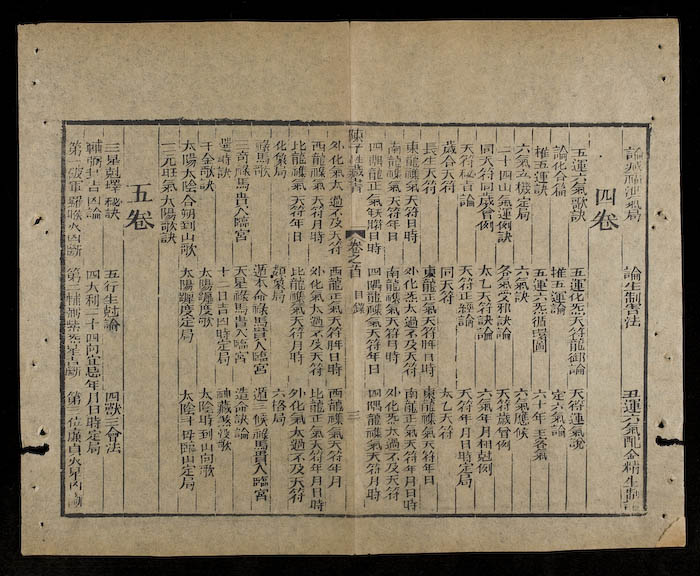 論生制害法
四卷
五運六氣歌訣 五運化炁天符龍卸論 天符運氣說
論化合篇 推五運論 定六氣論
推五運訣 五運六炁循環圖 六十年主客氣
六氣立機定局 六氣訣 六氣應候
二十四山氣運例訣 各氣受邪訣論 天符歲會例
同天符同歲會例 太乙天符訣論 六氣年月相尅例
天符秘旨論 天符正經論 天符年月日時定局
歲合天符 同天符 太乙天符
長生天符 東龍正氣天符年日時 東龍雜氣天符年月
東龍雜氣天符日時 外化炁太過不及天符 南龍正氣天符年日時
南龍雜氣天符月時 南龍雜氣天符年日 外化炁太過不及天符
四隅龍正氣天符年日時 四隅龍雜氣天符年日 四隅龍雜氣天符月時
陳子性藏書 卷之首 目錄 三
外化氣太過不及天符 西龍正氣天符年日時 西龍雜氣天符年月
西龍雜氣天符月時 外化氣太過不及天符 北龍正氣天符年月日時
北龍雜氣天符年日 北龍雜氣天符月時 外化氣太過不及天符
化象局 類象局 六格局
祿馬歌 遁本命祿馬貴人臨宮 遁三候祿馬貴人臨宮
三奇祿馬貴人臨宮 天星祿馬貴人臨宮 造命訣論
選時訣 十二日吉四時定局 神藏殺沒歌
千金歌訣 太陽躔度歌 太陰時到山向歌
太陽太陰合朔到山歌 太陽躔度定局 太陰十母臨山定局
三元旺氣太陽歌訣
五卷
三星剋擇秘訣 五行生尅論 四獸三會法
輔弼封吉凶論 四大利二十四向宜忌年月日時定局